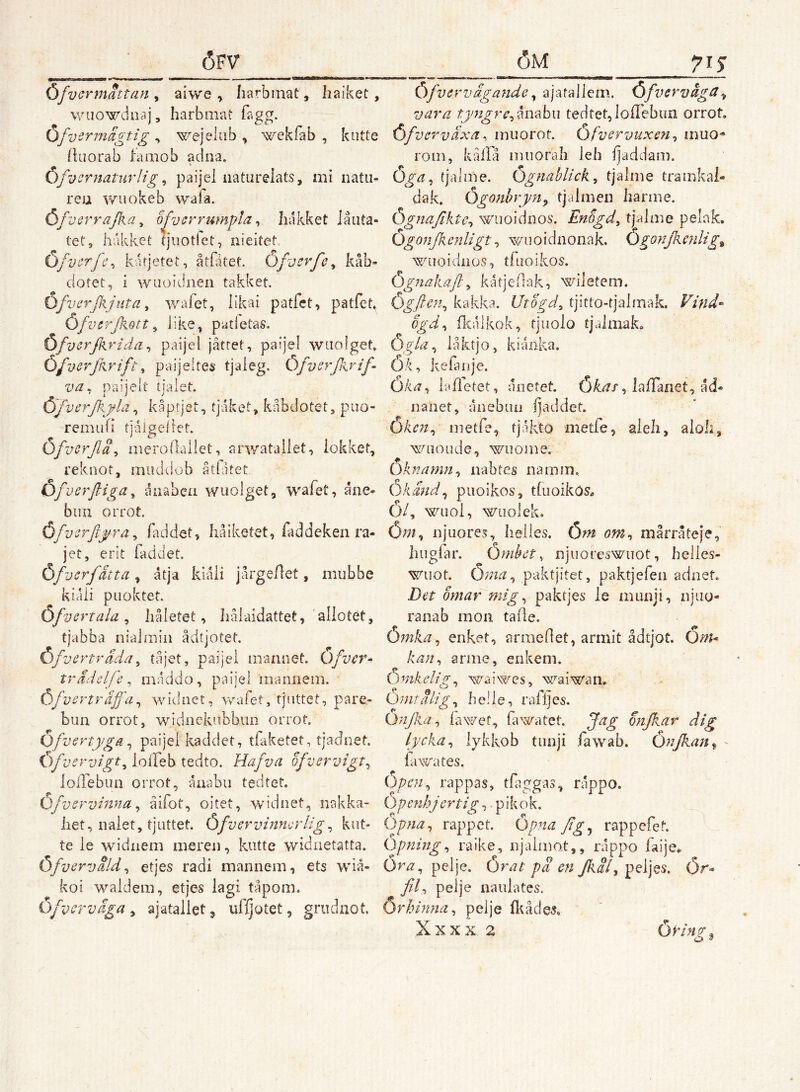 ÖFV
ÖM
715
Öfvermåttan, aiwe, harbmat, haiket,
wuowdnaj, harbmat ſagg.
Öfvermägtig, wejelub, wekſab, kutte
ſtuorab famob adna.
Öfvernaturlig, paijel naturelats, mi natu-
ren wuokeb waſa.
Öfverraſka, öfverrumpla, håkket låuta-
tet, håkket tjuotſet, nieitet.
Öfverſe, kåtjetet, åtſåtet. Öfverſe, kåb-
dotet, i wuoidnen takket.
Öfverſkjuta, waſet, likai patſet, patſet.
Öfverſkott, like, patſetas.
Öfverſkrida, paijel jåttet, paijel wuolget.
Öfverſkrift, paijeltes tjaleg. Öfverſkrif-
va, paijelt tjalet.
Öfverſkyla, kåptjet, tjåket, kåbdotet, puo-
remuſi tjålgeſtet.
Öfverſlå, meroſtallet, arwatallet, lokket,
reknot, muddob åtſåtet.
Öfverſtiga, ånaben wuolget, waſet, åne-
bun orrot.
Öfverſtyra, ſaddet, håiketet, ſaddeken ra-
jet, erit ſaddet.
Öfverſåtta, åtja kiåli jårgeſtet, mubbe
kiåli puoktet.
Öfvertala, håletet, hålaidattet, allotet,
tjabba nialmin ådtjotet.
Öfvertråda, tåjet, paijel mannet. Öfver-
trådelſe, måddo, paijel mannem.
Öfverträffa, widnet, waſet, tjuttet, pare-
bun orrot, widnekubbun orrot.
Öfvertyga, paijel kaddet, tſaketet, tjadnet.
Öfvervigt, loſſeb tedto. Hafva öfvervigt,
loſſebun orrot, ånabu tedtet.
Öfvervinna, åiſot, oitet, widnet, nakka-
het, nalet, tjuttet. Öfvervinnerlig, kut-
te le widnem meren, kutte widnetatta.
Öfvervåld, etjes radi mannem, ets wiå-
koi waldem, etjes lagi tåpom.
Öfverväga, ajatallet, uſſjotet, grudnot.
Öfvervägande, ajatallem. Öfverväga,
vara tyngre, ånabu tedtet, loſſebun orrot.
Öfverväxa, muorot. Öfvervuxen, muo-
rom, kåſſå muorah leh ſjaddam.
Öga, tjalme. Ögnablick, tjalme tramkal-
dak. Ögonbryn, tjalmen harme.
Ögnaſikte, wuoidnos. Enögd, tjalme pelak.
Ögonſkenligt, wuoidnonak. Ögonſkenlig,
wuoidnos, tſuoikos.
Ögnakaſt, kåtjeſtak, wiletem.
Ögſten, kakka. Utögd, tjitto-tjalmak. Vind-
ögd, ſkålkok, tjuolo tjalmak.
Ögla, låktjo, kiånka.
Ök, kefanje.
Öka, laſſetet, ånetet. Ökas, laſſanet, åd-
nanet, ånebun ſjaddet.
Öken, metſe, tjåkto metſe, aleh, aloh,
wuoude, wuome.
Öknamn, nabtes namm.
Ökänd, puoikos, tſuoikos.
Öl, wuol, wuolek.
Öm, njuores, helles. Öm om, mårråteje,
hugſar. Ömhet, njuoreswuot, helles-
wuot. Öma, paktjitet, paktjeſen adnet.
Det ömar mig, paktjes le munji, njuo-
ranab mon taſſe.
Ömka, enket, armeſtet, armit ådtjot. Öm-
kan, arme, enkem.
Ömkelig, waiwes, waiwan.
Ömtålig, helle, raſſjes.
Önſka, ſawet, ſawatet. Jag önſkar dig
lycka, lykkob tunji ſawab. Önſkan,
ſawates.
Öpen, rappas, tſaggas, råppo.
Öpenhjertig, pikok.
Öpna, rappet. Öpna ſig, rappeſet.
Öpning, raike, njalmot,, råppo ſaije.
Öra, pelje. Örat på en ſkål, peljes. Ör-
fil, pelje naulates.
Örhinna, pelje ſkådes.
Xxxx 2
Öring,